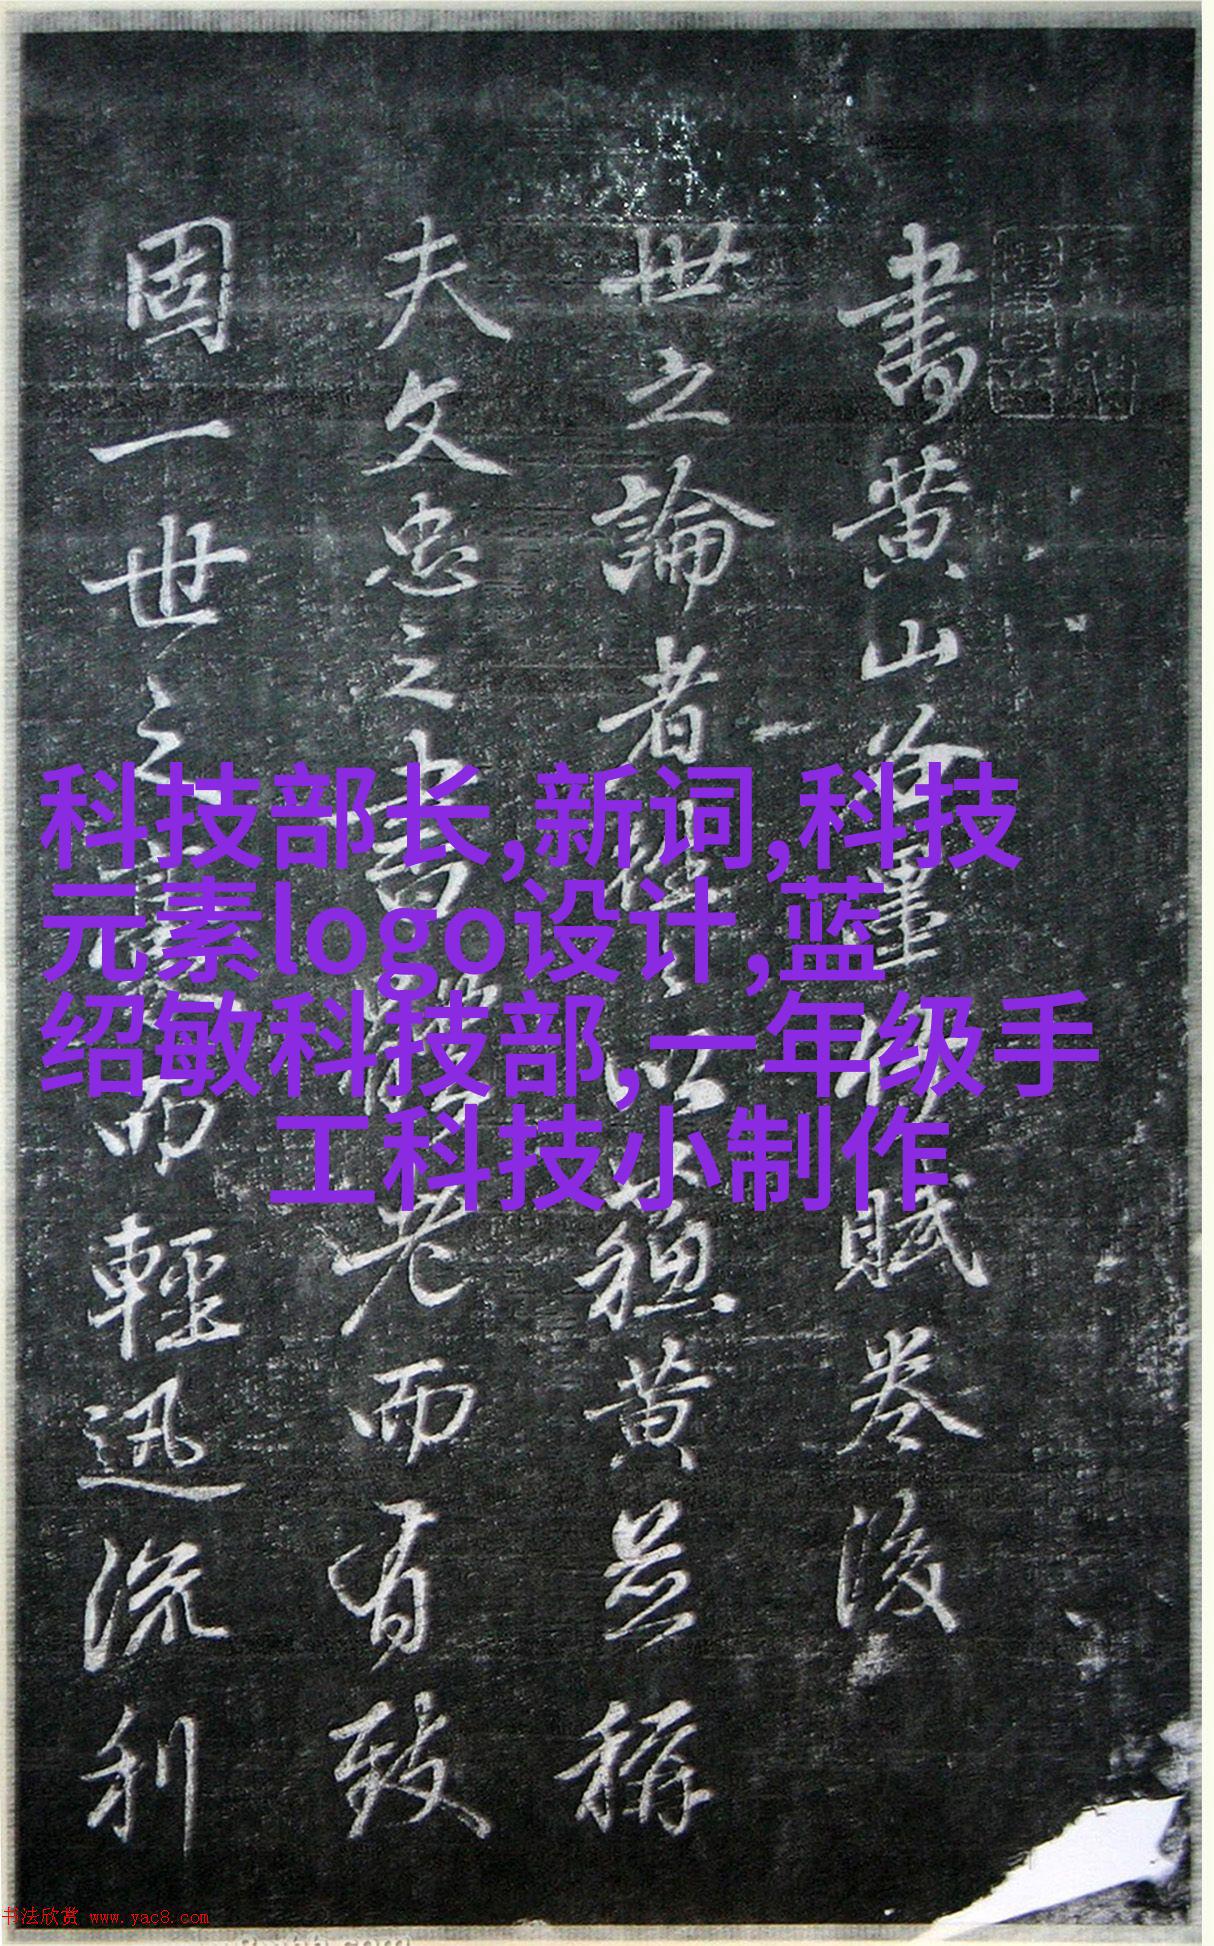 書黄山谷賦卷後
世之論者以蘓黄並稱
夫文忠之書體老而有致
固一世之而輕迅流利
科技部长,新词,科技
元素logo设计,蓝
绍敏科技部,一年级手
工科技小制作
书法欣赏 www.yac8.com